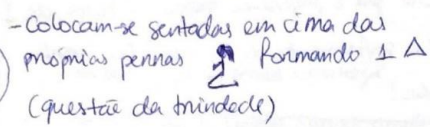 - Colocam-se sentadas em cima das
próprias pernas formando 1 Δ
(questão da trindade)